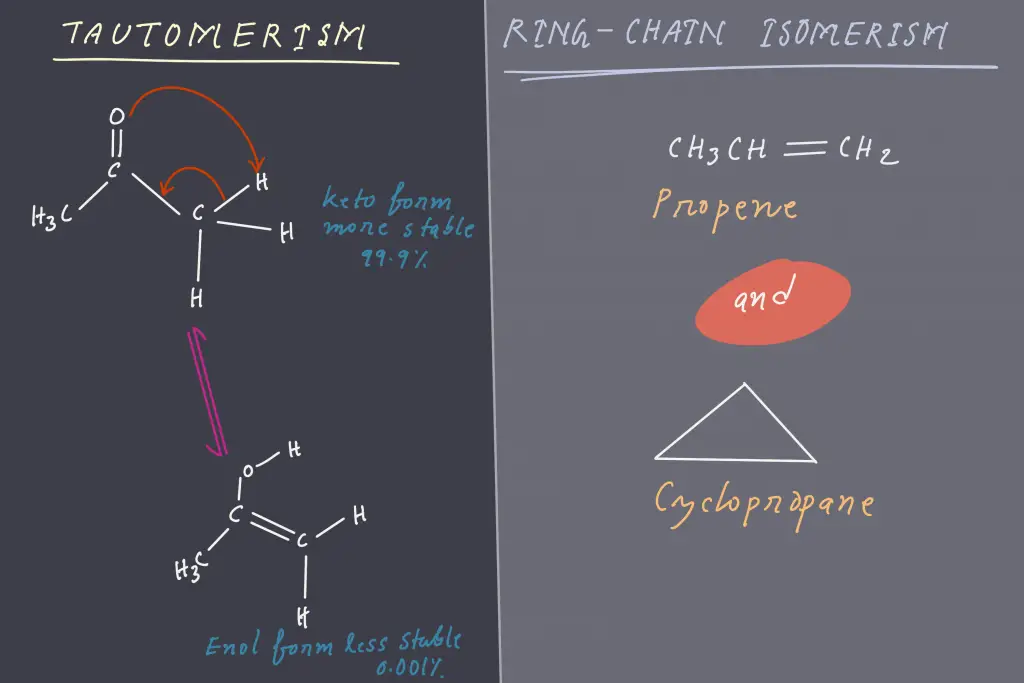 TAUTOMERISM
O
C
H3C
C
H
H
H
keto form
more stable
99.9%
O
H
C
H3C
C
H
H
Enol form less stable
0.001%
RING-CHAIN ISOMERISM
CH3CH=CH2
Propene
and
Cyclopropane